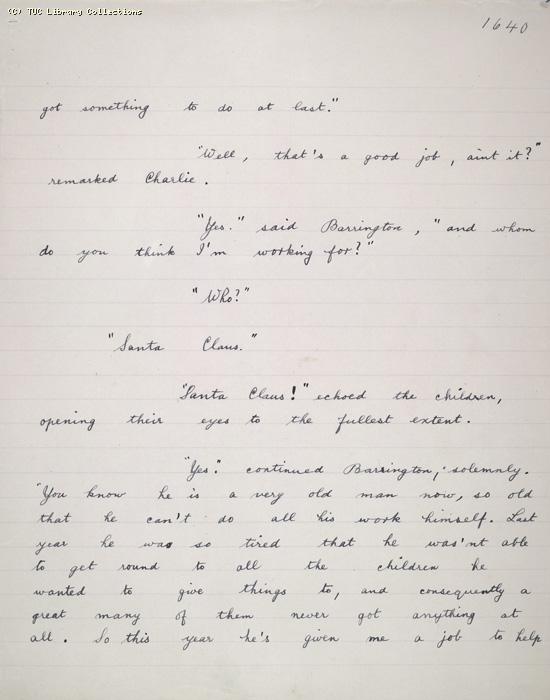 (C) TUC Library Collections
1640
got something to do at last."
"Well, that's a good job, aint it?"
remarked Charlie.
"Yes." said Barrington, "and whom
do you think I'm working for?"
"Who?"
"Santa Claus."
"Santa Claus!" echoed the children,
opening their eyes to the fullest extent.
"Yes." continued Barrington, solemnly.
"You know he is a very old man now, so old
that he can't do all his work himself. Last
year he was so tired that he was'nt able
to get round to all the children he
wanted to give things to, and consequently a
great many of them never got anything at
all. So this year he's given me a job to help